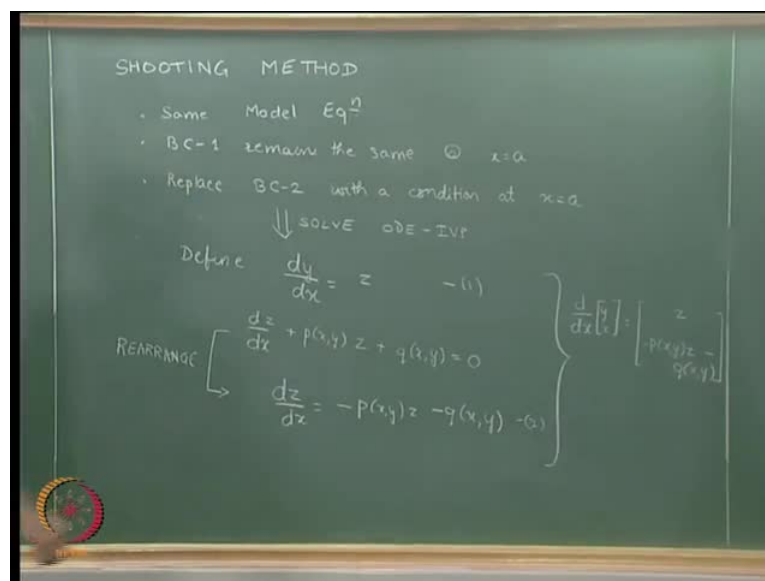 SHOOTING METHOD
• Same Model Eqⁿ
• BC-1 remains the same @ x=a
• Replace BC-2 with a condition at x=a
⇓ SOLVE ODE-IVP
Define dy/dx = z -(1)
dz/dx + p(x,y) z + q(x,y) = 0
REARRANGE
dz/dx = -p(x,y) z - q(x,y) -(2)
d/dx [y z] = [z -p(x,y)z - q(x,y)]
NPTEL